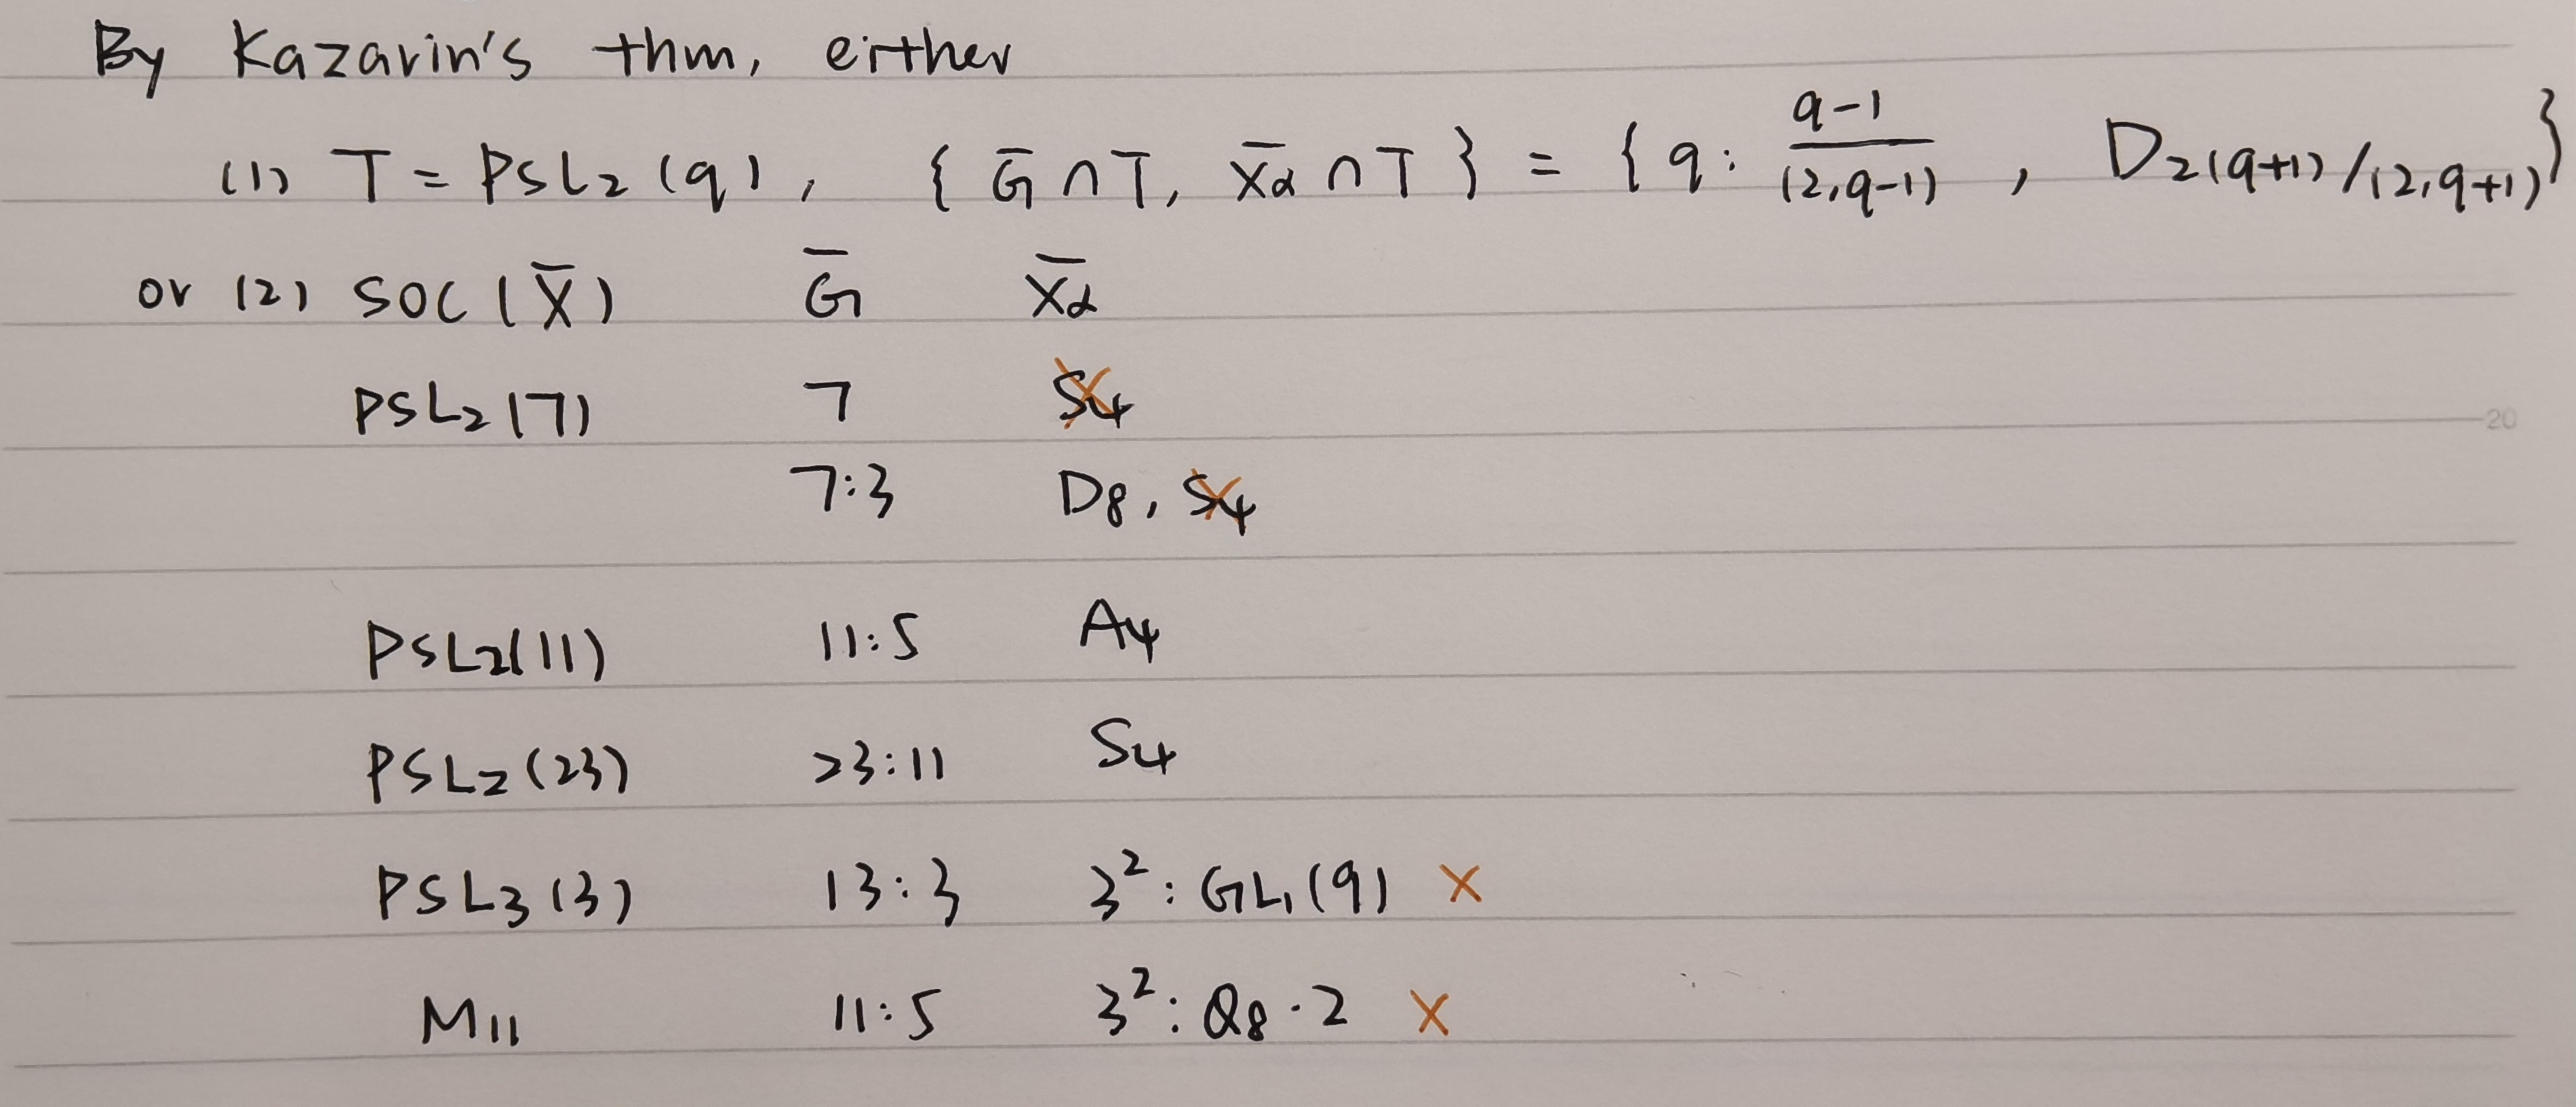 By Kazarin's thm, eirther
(1) T = PSL₂(q), { G̅ ∩ T, X̅α ∩ T } = { q : (q-1)/(2,q-1), D₂₍q₊₁₎/(2,q+1) }
or (2) SOC(X̅) G̅ X̅α
PSL₂(7) 7 S4
7:3 D8, S4
20
PSL₂(11) 11:5 A4
PSL₂(23) 23:11 S4
PSL₃(3) 13:3 3²: GL₁(9) ×
M11 11:5 3²: Q8·2 ×